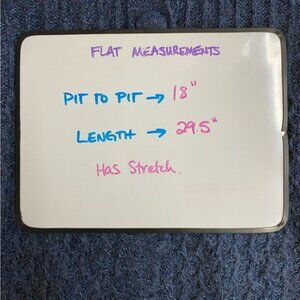 FLAT MEASUREMENTS
PIT TO PIT → 18"
LENGTH → 29.5"
Has Stretch.